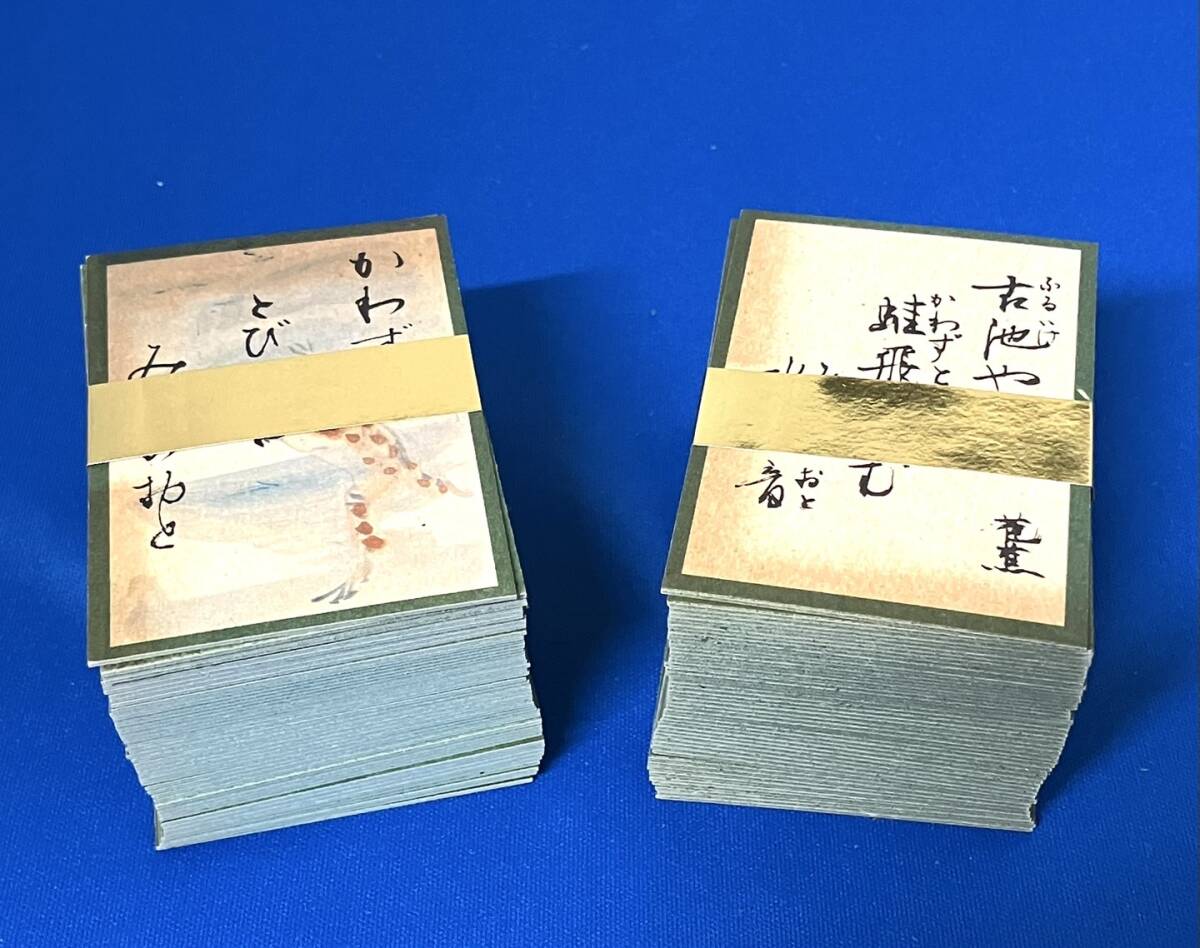 かわず
とび
み
おと
ふるいけ
古池や
かわずと
蛙飛
む
音
おと
芭蕉